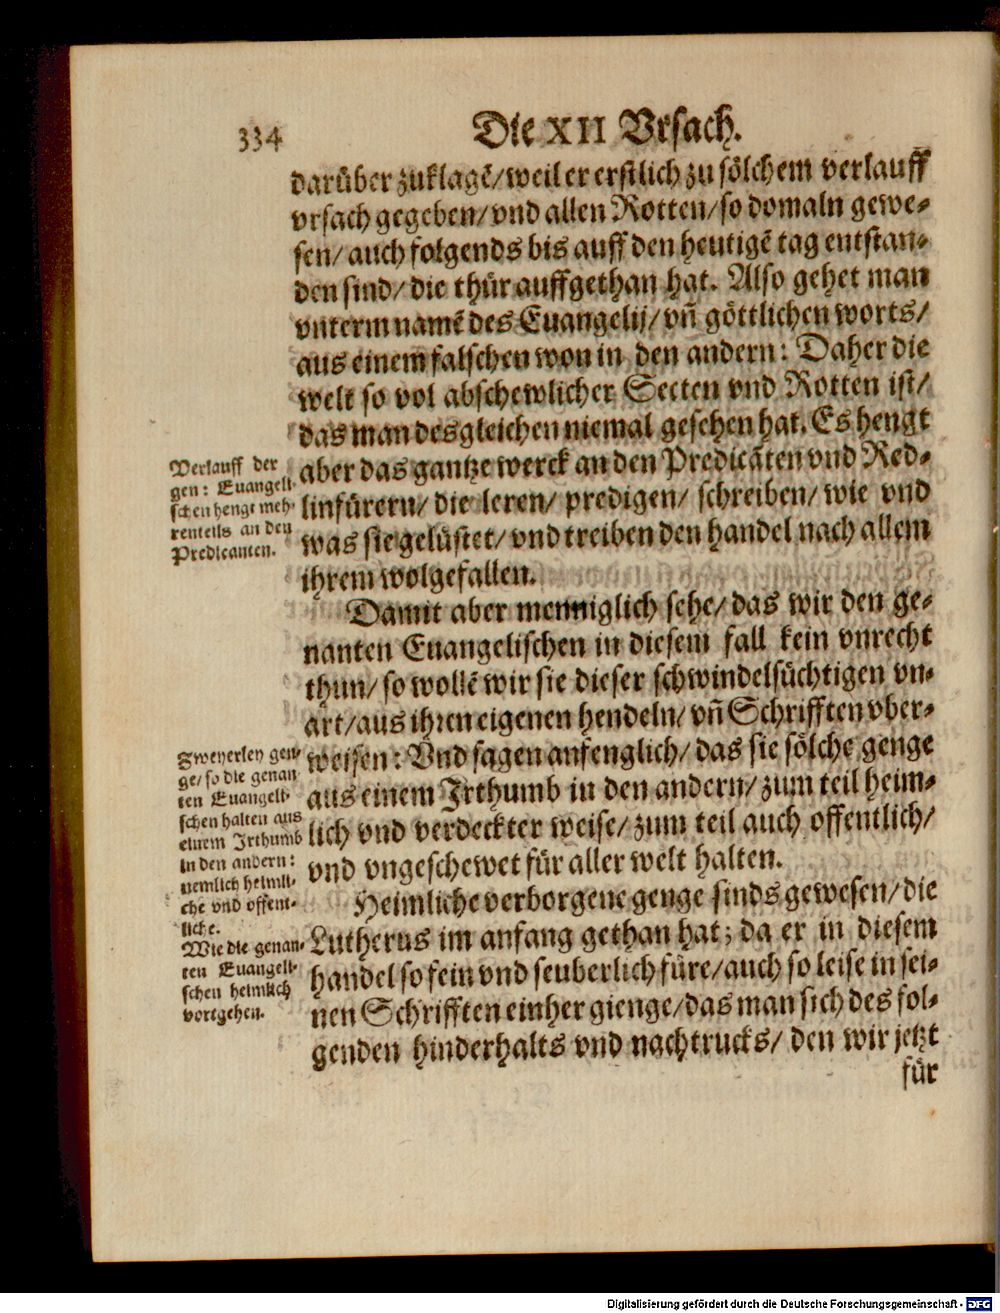 334
Die XII Vrsach.
darüber zuklagẽ/weil er erstlich zu sölchem verlauff
vrsach gegeben/vnd allen Rotten/so domaln gewe-
sen/auch folgends bis auff den heutigẽ tag entstan-
den sind/die thür auffgethan hat. Also gehet man
vnterm namẽ des Euangelij/vñ göttlichen worts/
aus einem falschen won in den andern: Daher die
welt so vol abschewlicher Secten vnd Rotten ist/
das man desgleichen niemal gesehen hat. Es hengt
aber das gantze werck an den Predicãten vnd Red-
linfürern/die leren/predigen/schreiben/wie vnd
was sie gelüstet/vnd treiben den handel nach allem
ihrem wolgefallen.
Verlauff der
gen: Euangeli-
schen hengt meh-
renteils an den
Predicanten.
Damit aber menniglich sehe/das wir den ge-
nanten Euangelischen in diesem fall kein vnrecht
thun/so wollẽ wir sie dieser schwindelsüchtigen vn-
art/aus ihren eigenen hendeln/vñ Schrifften vber-
weisen: Vnd sagen anfenglich/das sie sölche genge
aus einem Irthumb in den andern/zum teil heim-
lich vnd verdeckter weise/zum teil auch offentlich/
vnd vngeschewet für aller welt halten.
Zweyerley gen-
ge/so die genan
ten Euangeli-
schen halten aus
einem Irthumb
in den andern:
nemlich heimli-
che vnd offent-
liche.
Heimliche verborgene genge sinds gewesen/die
Lutherus im anfang gethan hat; da er in diesem
handel so fein vnd seuberlich füre/auch so leise in sei-
nen Schrifften einher gienge/das man sich des fol-
genden hinderhalts vnd nachtrucks/den wir jetzt
Wie die genan-
ten Euangeli-
schen heimlich
vortgehen.
für
Digitalisierung gefördert durch die Deutsche Forschungsgemeinschaft - DFG